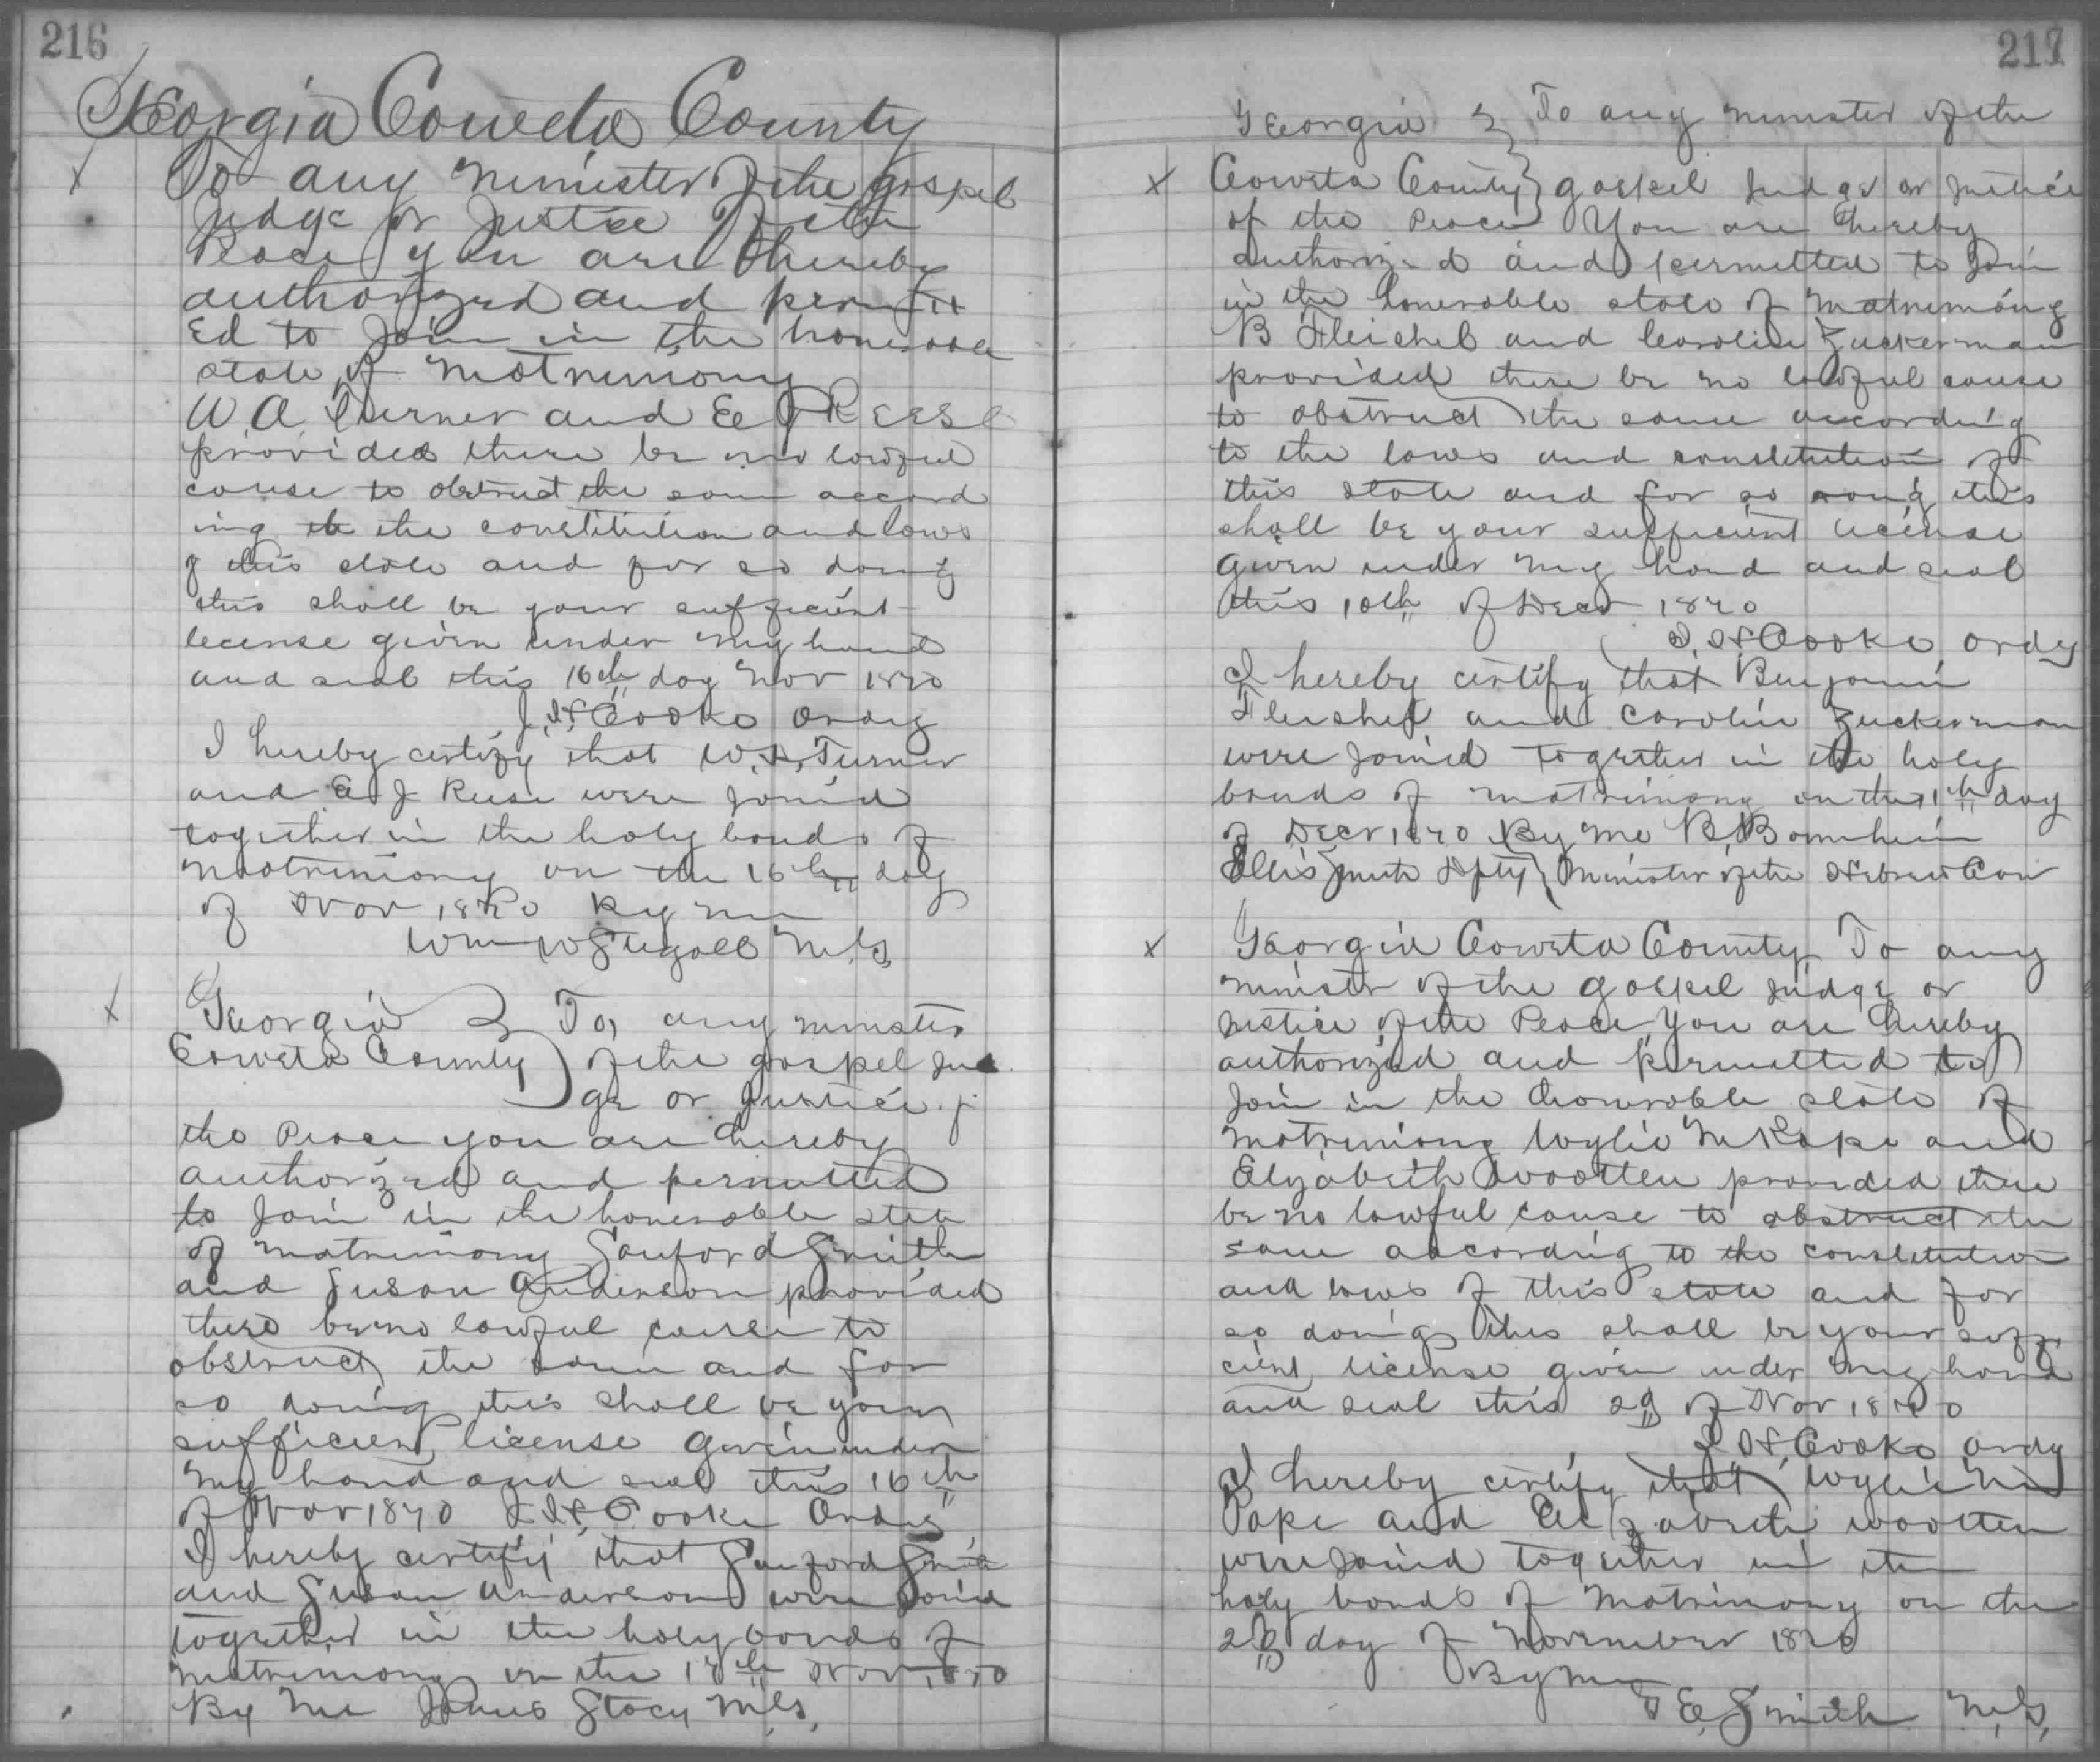 216
Georgia Coweta County
To any minister of the gospel
Judge or Justice of the
Peace you are hereby
authorized and permitt
Ed to Join in the honerable
state of Matrimony
W A Turner and E J Reese
provided there be no lawful
cause to obstruct the same accord
ing to the constitution and laws
of this state and for so doing
this shall be your sufficient
license given under my hand
and seal this 16th day Nov 1870
J. H Cooke Ordy
I hereby certify that W. A. Turner
and E J Reese were joined
together in the holy bonds of
Matrimony on the 16th day
of Nov 1870 by me
Wm W Stegall M. G.
Georgia } To any minister
Coweta County } of the gospel Jud
ge or Justice of
the Peace you are hereby
authorized and permitted
to Join in the honerable state
of matrimony Sanford Smith
and Susan Anderson provided
there be no lawful cause to
obstruct the same and for
so doing this shall be your
sufficient license given under
my hand and seal this 16th
of Nov 1870 J. H. Cooke Ordy
I hereby certify that Sanford Smith
and Susan Anderson were joined
together in the holy bonds of
matrimony on the Nov 1870
By me James Stacy M. G.
217
Georgia } To any minister of the
Coweta County } gospel Judge or Justice
of the Peace You are hereby
authorized and permitted to Join
in the honerable state of matrimony
B Fleishel and Caroline Zuckerman
provided there be no lawful cause
to obstruct the same according
to the laws and constitution of
this state and for so doing this
shall be your sufficient license
given under my hand and seal
this 10th of Decr 1870
J. H Cooke ordy
I hereby certify that Benjamin
Fleishel and Caroline Zuckerman
were joined together in the holy
bonds of matrimony on the 11th day
of Decr 1870 By me B, Bornheim
Minister of the Hebrew Con
Georgia Coweta County To any
minister of the gospel Judge or
Justice of the Peace You are hereby
authorized and permitted to
Join in the honerable state of
matrimony Wylie M Pope and
Elizabeth Wootten provided there
be no lawful cause to obstruct the
same according to the constitution
and laws of this state and for
so doing this shall be your suffi
cient license given under my hand
and seal this of Nov 1870
J. H. Cooke ordy
I hereby certify that Wylie M
Pope and Elizabeth Wootten
were joined together in the
holy bonds of Matrimony on the
day of November 1870
By me
E. Smith M. G.